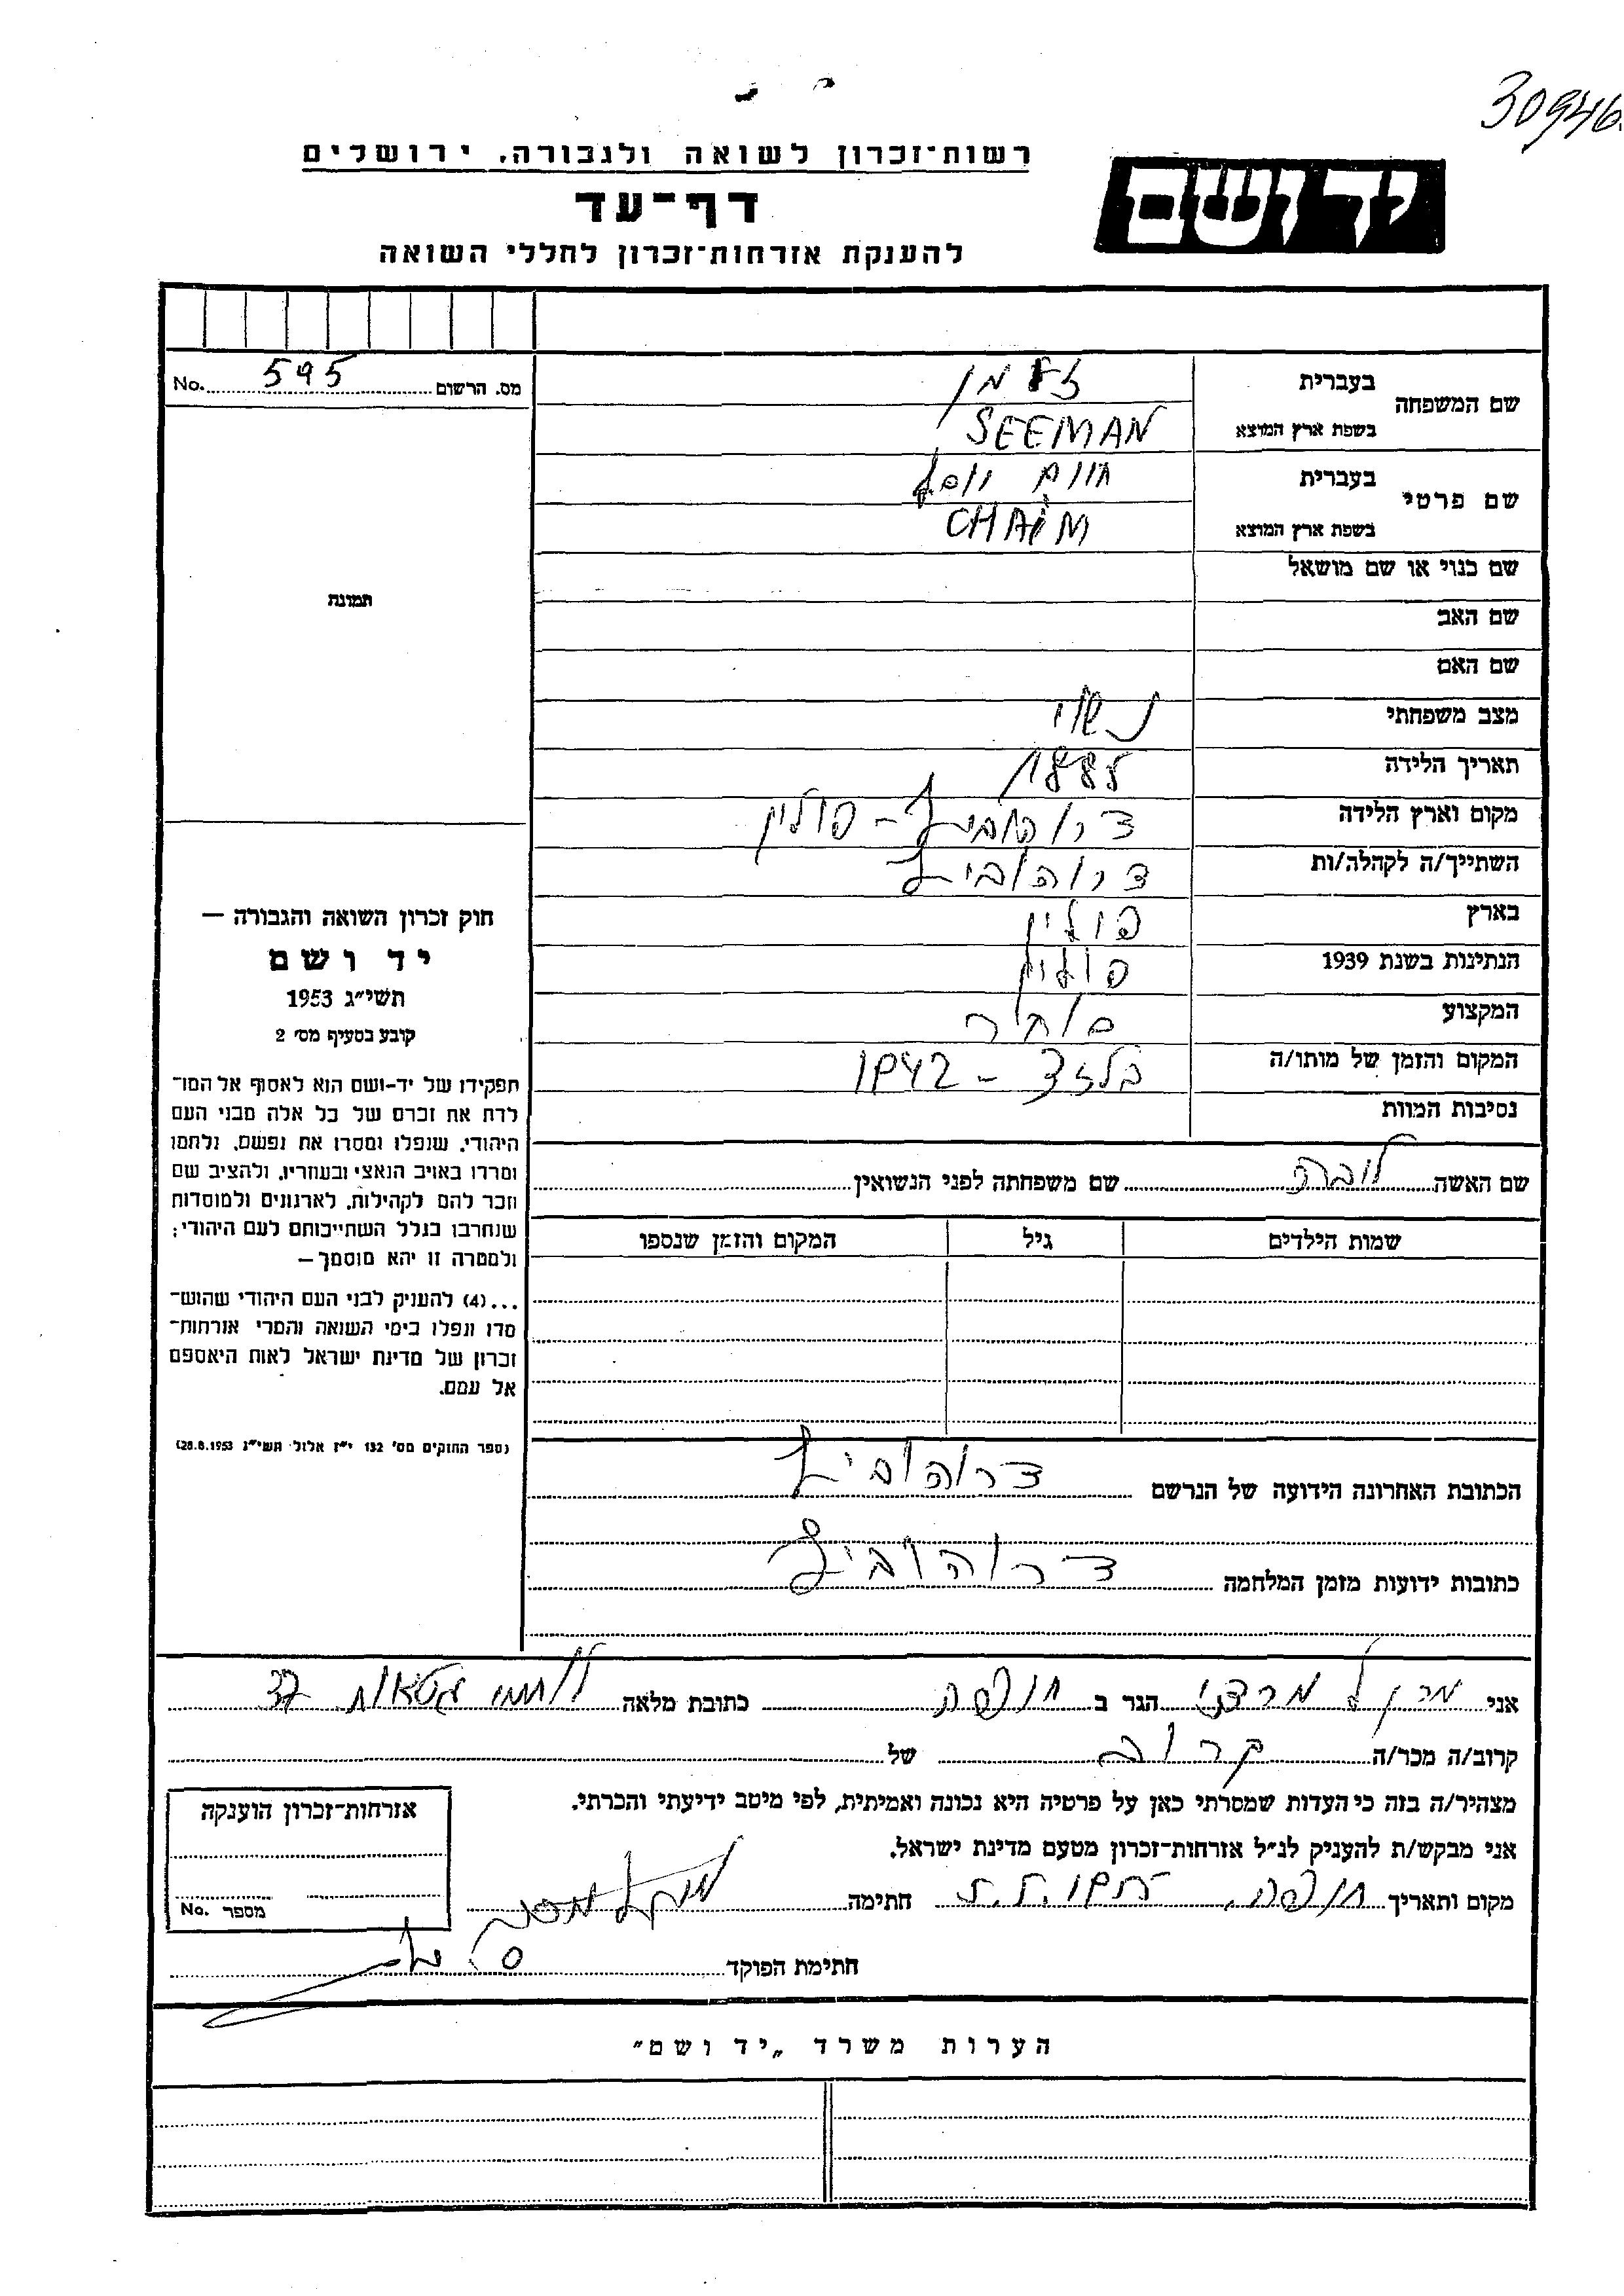 30946
רשות־זכרון לשואה ולגבורה, ירושלים
יד ושם
דף־עד
להענקת אזרחות־זכרון לחללי השואה
מס. הרשום 595 No.
שם המשפחה
בעברית
בשפת ארץ המוצא SEEMAN
שם פרטי
בעברית חיים יוסף
בשפת ארץ המוצא CHAIM
שם כנוי או שם מושאל
שם האב
שם האם
מצב משפחתי נשוי
תאריך הלידה
מקום וארץ הלידה דרוהוביץ - פולין
השתייך/ה לקהלה/ות דרוהוביץ
בארץ פולין
הנתינות בשנת 1939 פולין
המקצוע סוחר
המקום והזמן של מותו/ה בלזץ - 1942
נסיבות המוות
תמונה
חוק זכרון השואה והגבורה —
יד ושם
תשי"ג 1953
קובע בסעיף מס' 2
תפקידו של יד-ושם הוא לאסוף אל המו־
לדת את זכרם של כל אלה מבני העם
היהודי, שנפלו ומסרו את נפשם, נלחמו
ומרדו באויב הנאצי ובעוזריו, ולהציב שם
וזכר להם לקהילות, לארגונים ולמוסדות
שנחרבו בגלל השתייכותם לעם היהודי;
ולמטרה זו יהא מוסמך —
...(4) להעניק לבני העם היהודי שהוש־
מדו ונפלו בימי השואה והמרי אזרחות־
זכרון של מדינת ישראל לאות היאספם
אל עמם.
(ספר החוקים מס' 132 י"ז אלול תשי"ג 28.8.1953)
שם האשה שם משפחתה לפני הנשואין
שמות הילדים גיל המקום והזמן שנספו
הכתובת האחרונה הידועה של הנרשם דרוהוביץ
כתובות ידועות מזמן המלחמה דרוהוביץ
אני הגר ב חיפה כתובת מלאה לוחמי גטאות 37
קרוב/ה מכר/ה קרוב של
מצהיר/ה בזה כי העדות שמסרתי כאן על פרטיה היא נכונה ואמיתית, לפי מיטב ידיעתי והכרתי.
אני מבקש/ת להעניק לנ"ל אזרחות־זכרון מטעם מדינת ישראל.
מקום ותאריך חיפה, חתימה
חתימת הפוקד
אזרחות־זכרון הוענקה
מספר No.
הערות משרד „יד ושם"